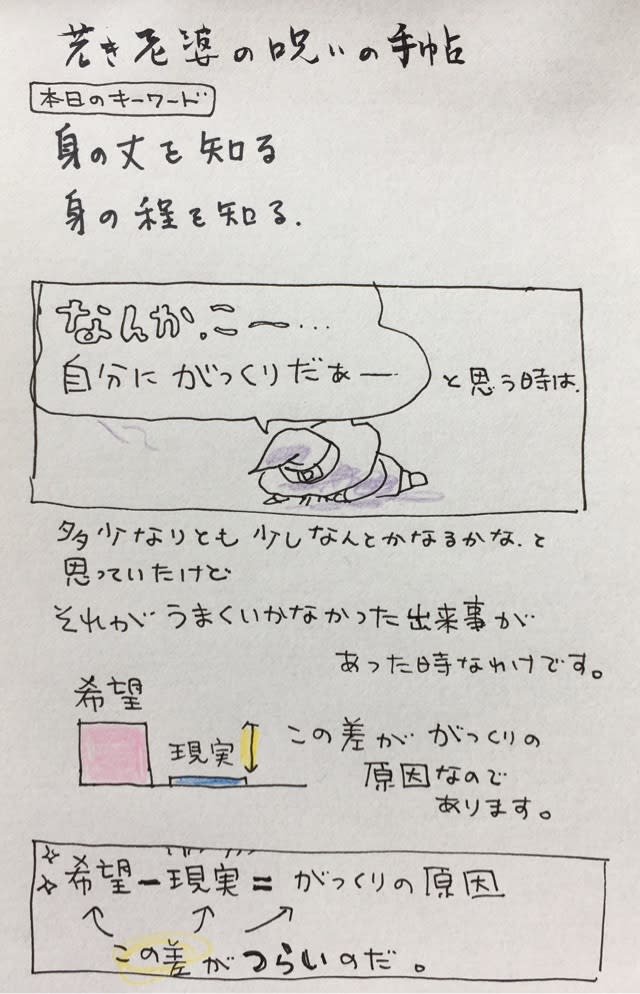 若き老婆の呪いの手帖
本日のキーワード
身の丈を知る
身の程を知る.
なんか.こー…
自分にがっくりだぁー
と思う時は.
多少なりとも少しなんとかなるかな.と
思っていたけど
それがうまくいかなかった出来事が
あった時なわけです。
希望
現実
この差ががっくりの
原因なので
あります。
希望-現実=がっくりの原因
この差がつらいのだ。